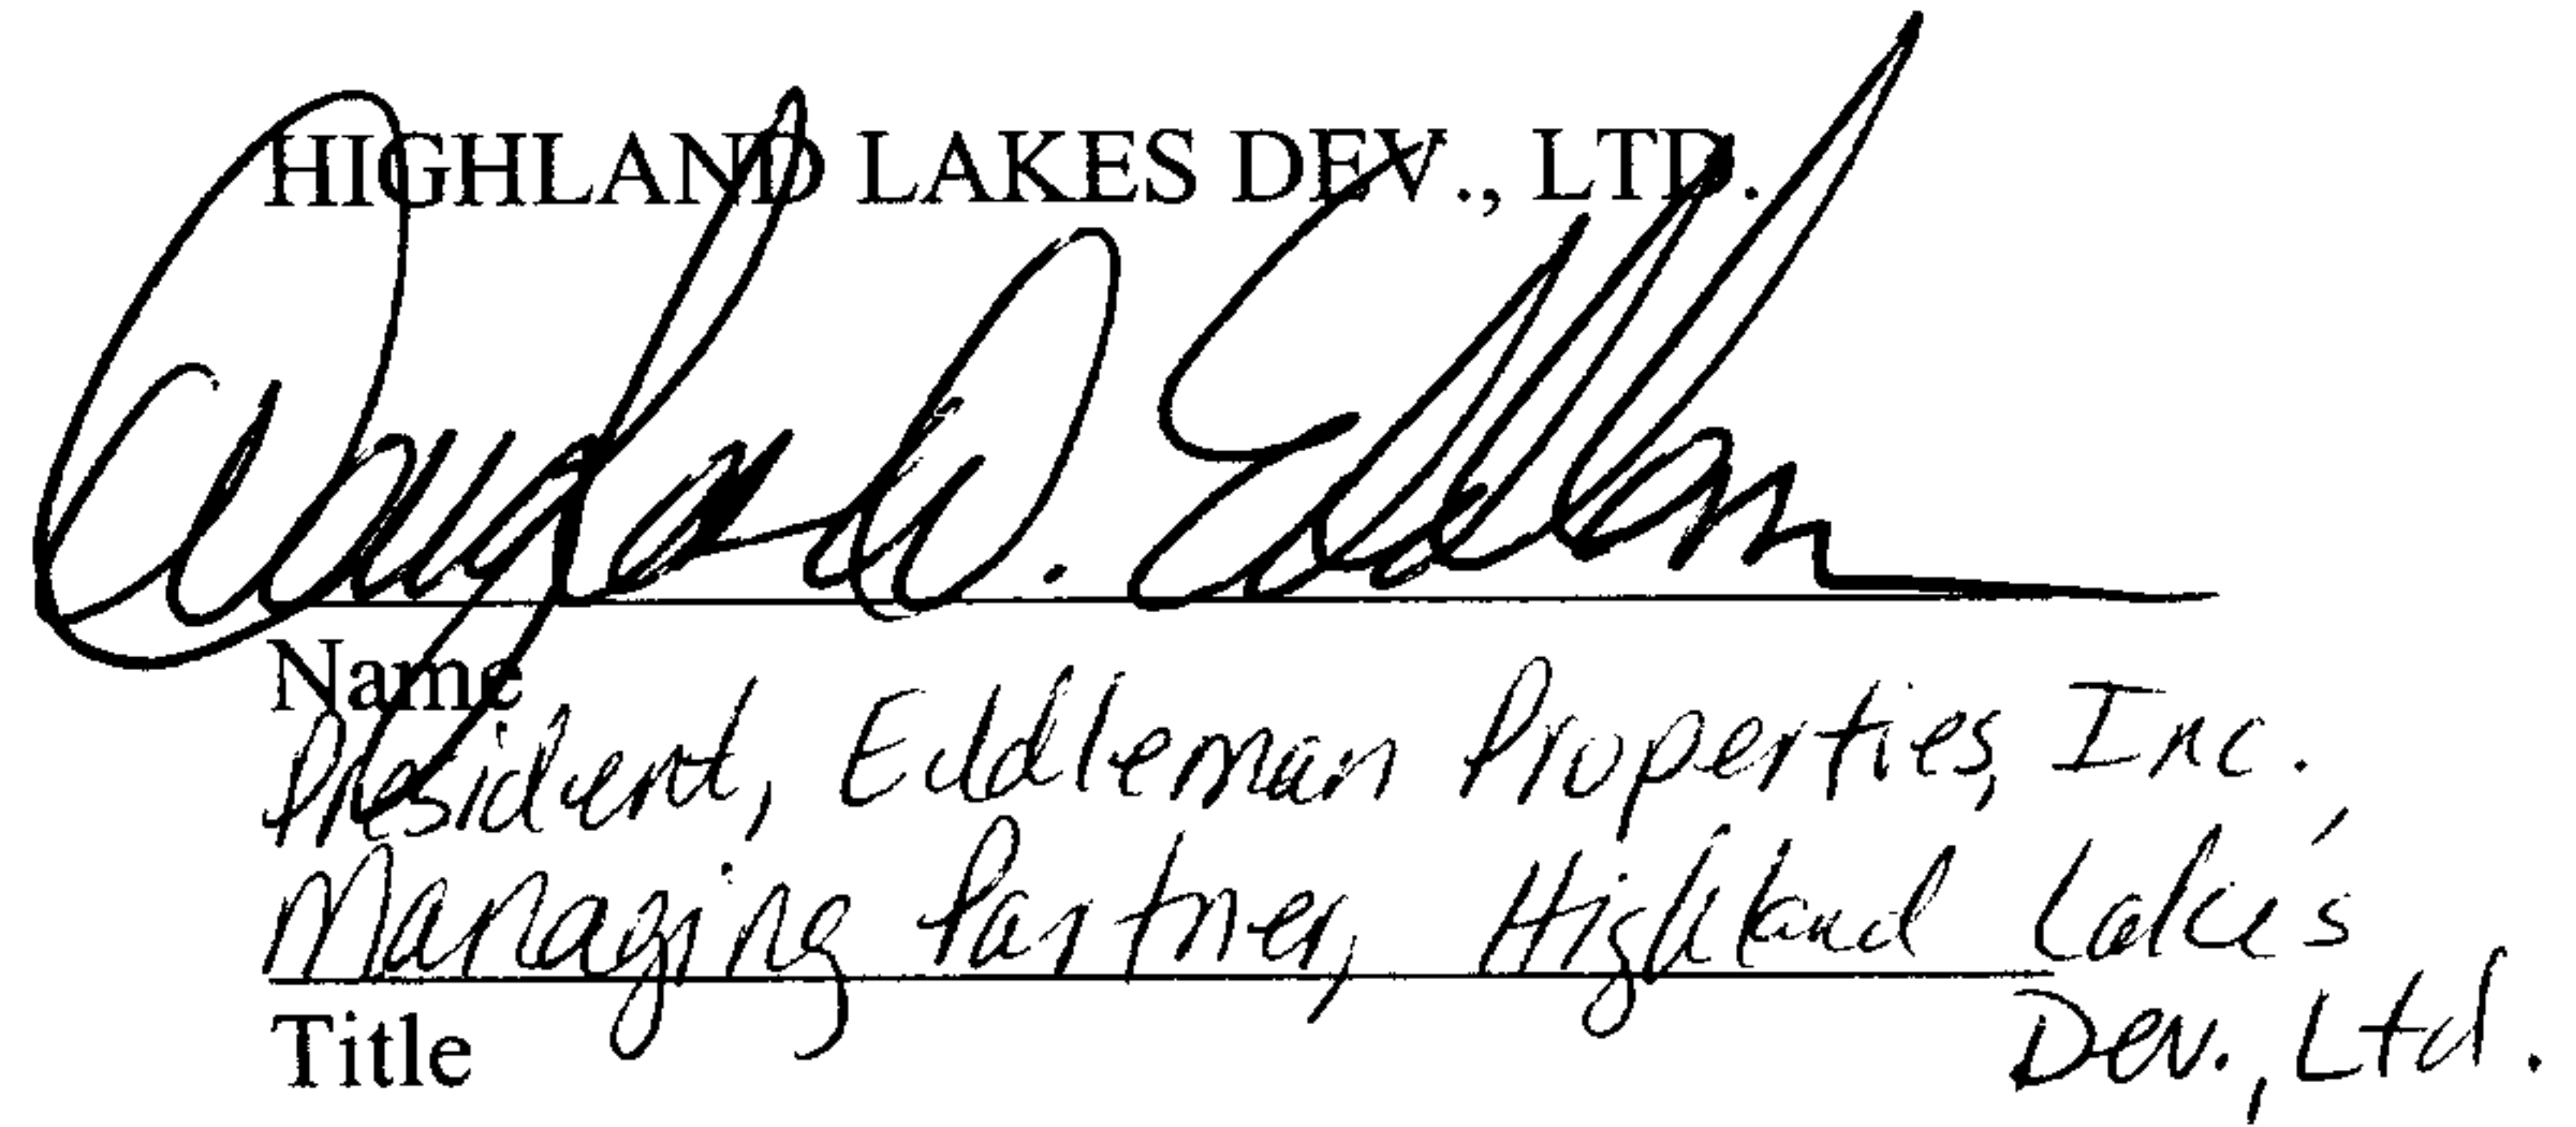 HIGHLAND LAKES DEV., LTD.
Douglas D. Eddleman
Name
President, Eddleman Properties, Inc.,
Managing Partner, Highland Lakes
Dev., Ltd.
Title